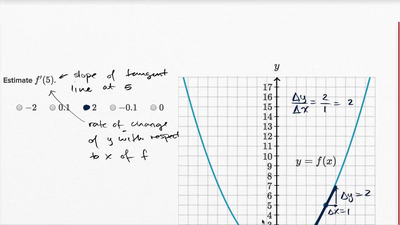 Estimate f'(5).
← slope of tangent
line at 5
-2 0.1 2 -0.1 0
rate of change
of y with respect
to x of f
y
17
16
15
14
13
12
11
10
9
8
7
6
5
4
3
Δy/Δx = 2/1 = 2
y = f(x)
Δy = 2
Δx = 1